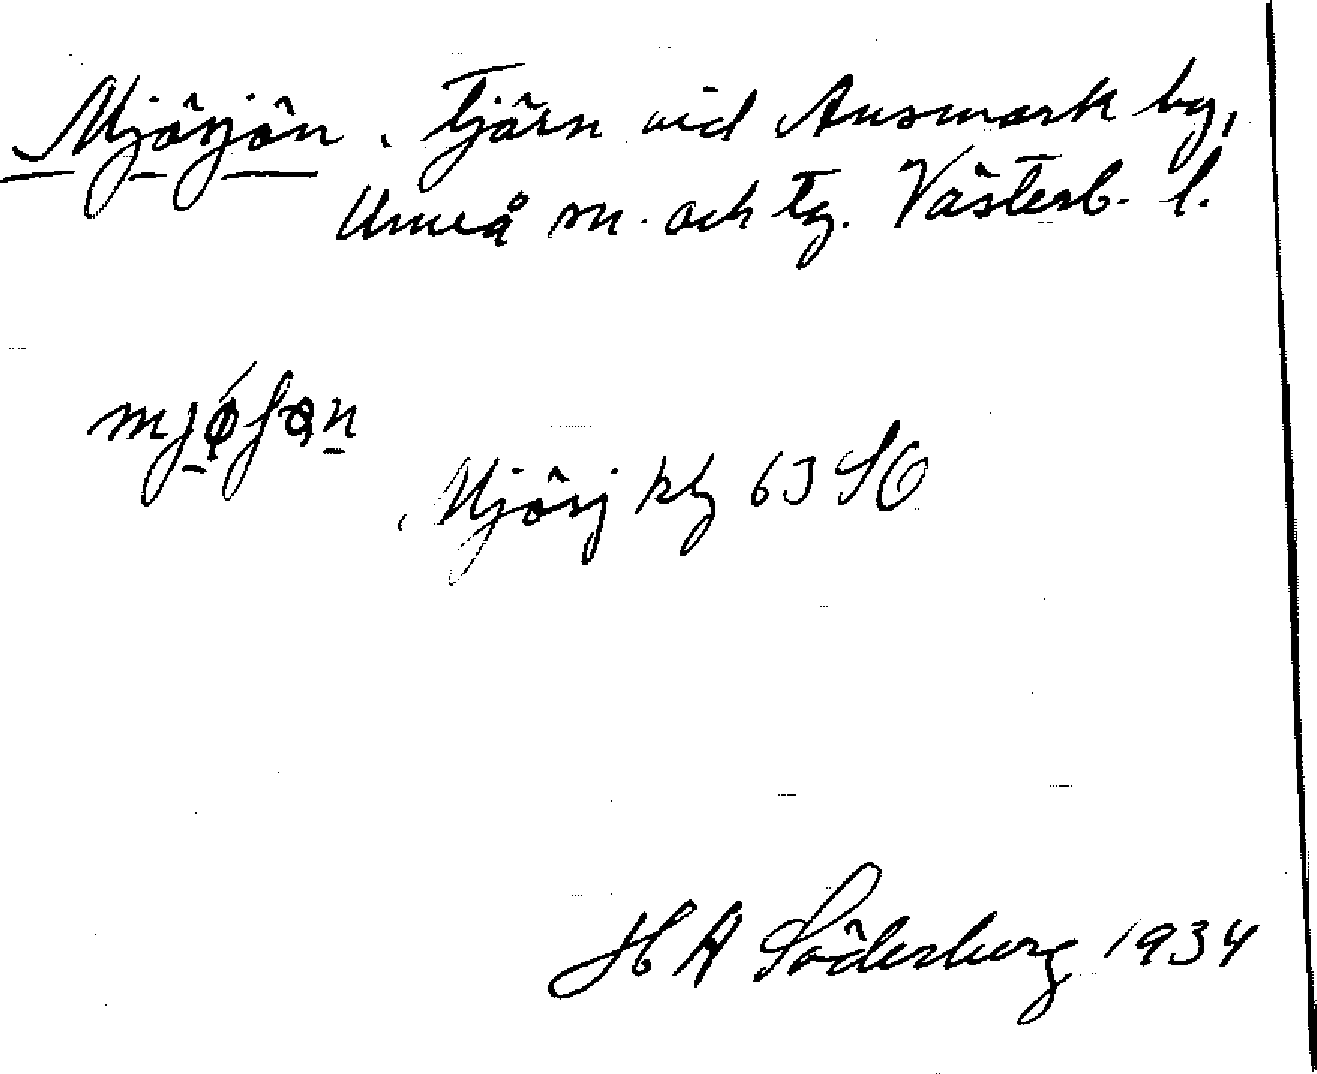 Mjösjön. Tjärn vid Ansmark by,
Umeå sn. och tg. Västerb. l.
mjøʃøn
Mjösj klg 63 SO
H A Söderberg 1934